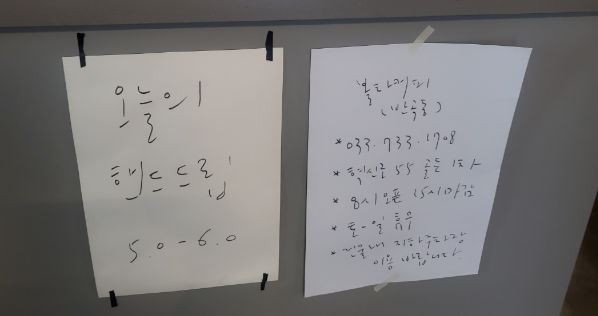 오늘의
핸드드립
5.0-6.0
볼타커피
(반곡동)
* 033.733.1708
* 혁신로 55 골든 1차
* 8시오픈 15시마감
* 토-일 휴무
* 건물내 지하주차장
이용 바랍니다